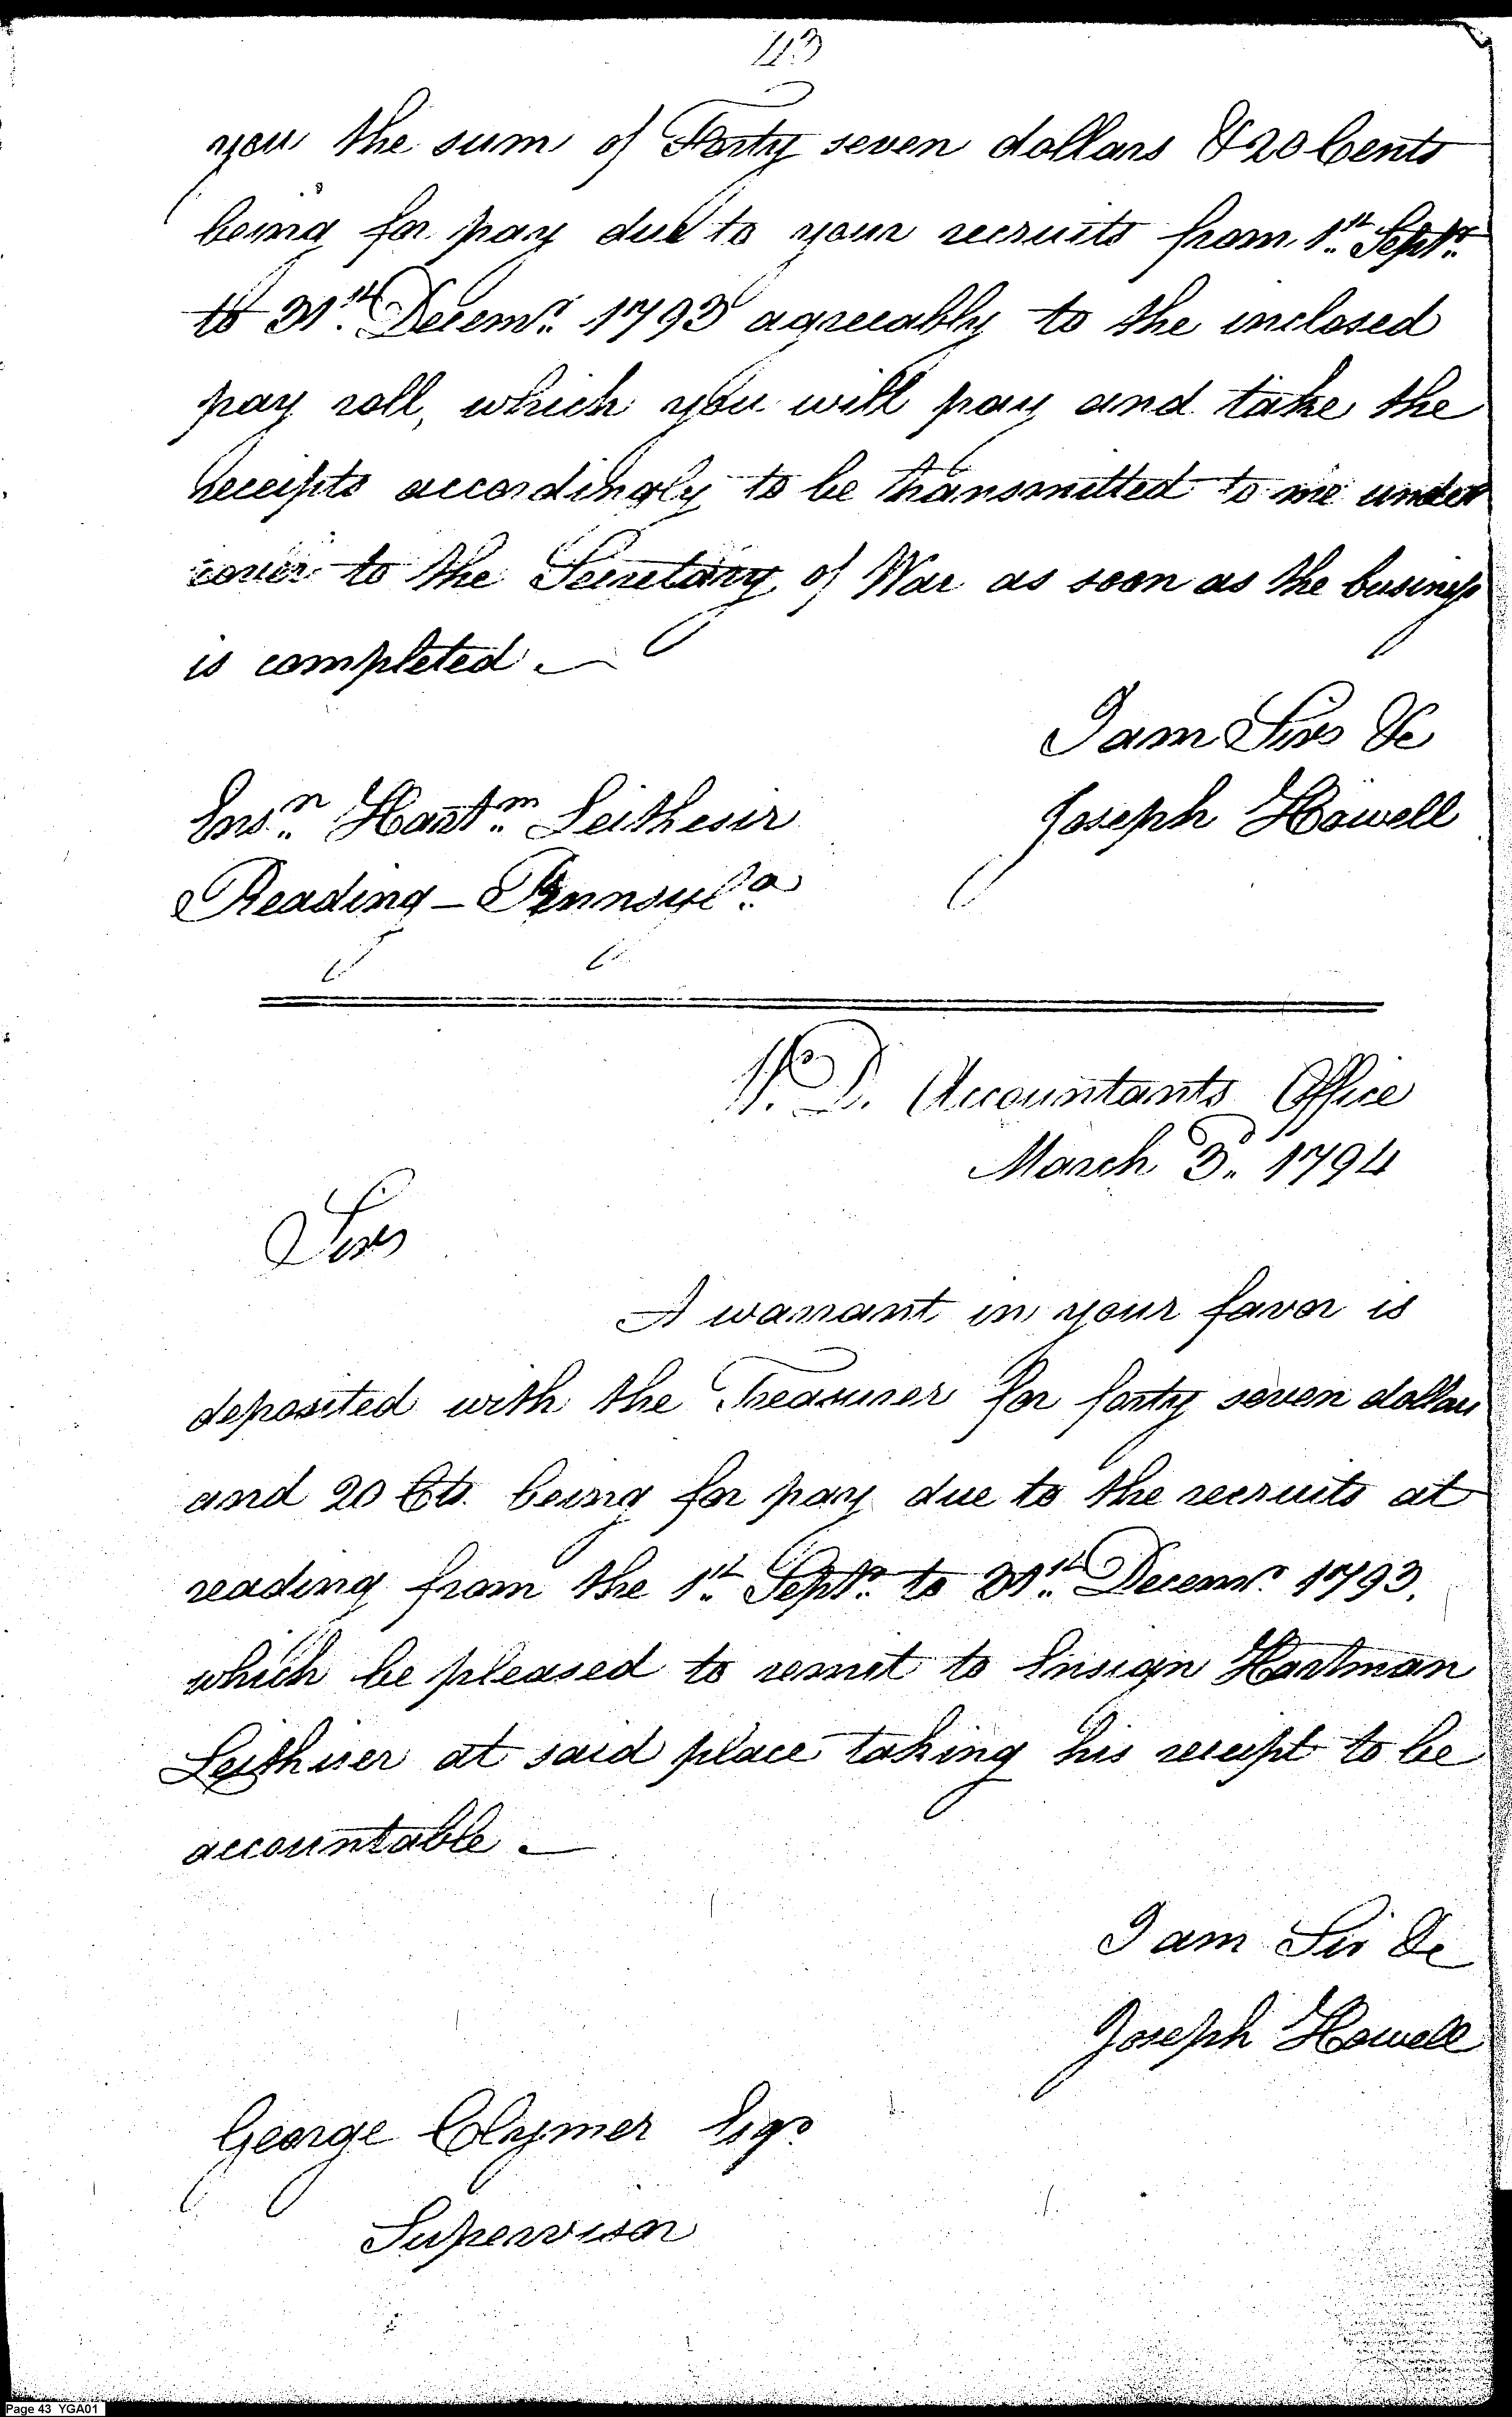 43
you the sum of Forty seven dollars & 20 Cents
being for pay due to your recruits from 1st Septr
to 31st Decemr 1793 agreeably to the inclosed
pay roll, which you will pay and take the
receipts accordingly to be transmitted to me under
cover to the Secretary of War as soon as the business
is completed.
I am Sir &c
Joseph Howell
Ensn Hartmn Leithesir
Reading - Pennsyla
W.D. Accountants Office
March 3d 1794
Sir
A warrant in your favor is
deposited with the Treasurer for forty seven dollars
and 20 Cts. being for pay due to the recruits at
reading from the 1st Septr to 31st Decemr 1793.
which be pleased to remit to Ensign Hartman
Leithiser at said place taking his receipt to be
accountable.
I am Sir &c
Joseph Howell
George Clymer Esqr
Supervisor
Page 43 YGA01